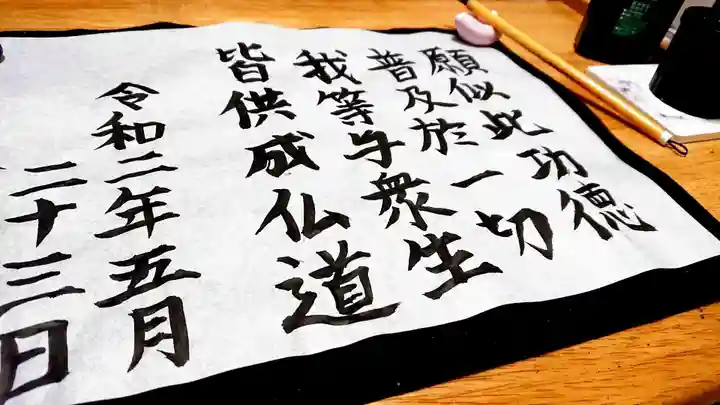 願似此功徳
普及於一切
我等与衆生
皆供成仏道
令和二年五月
二十三日